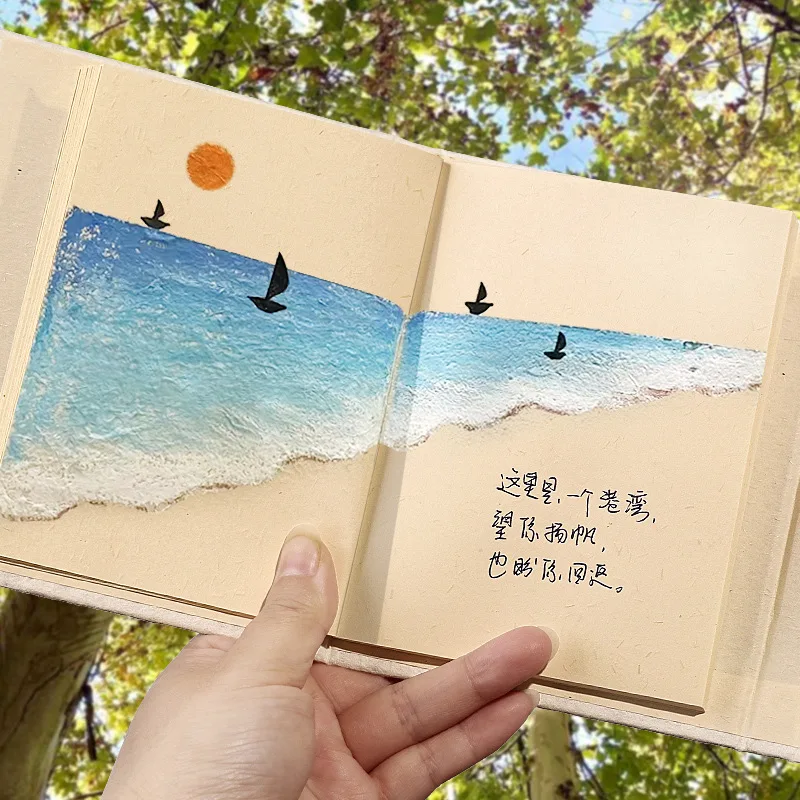 这里是一个港湾,
望你扬帆,
也盼你回返。